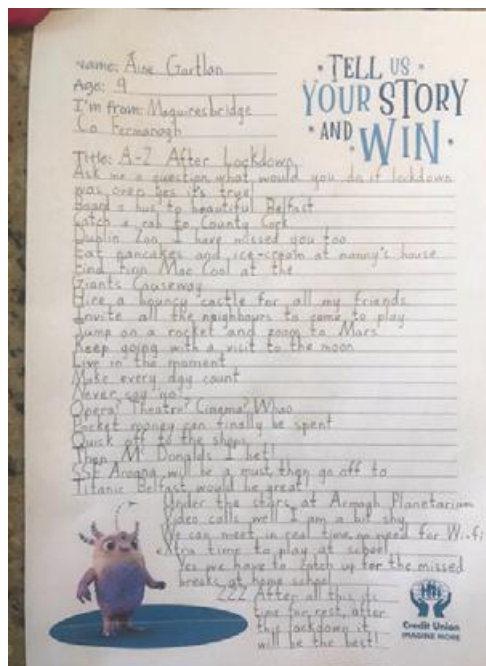 Name: Áine Gartlan
Age: 9
I'm from: Maguiresbridge
Co Fermanagh
TELL US
YOUR STORY
AND WIN
Title: A-Z After Lockdown
Ask me a question what would you do if lockdown
was over yes it's true!
Board a bus to beautiful Belfast
Catch a cab to County Cork
Dublin Zoo, I have missed you too
Eat pancakes and ice-cream at nanny's house
Find Finn Mac Cool at the
Giants Causeway
Hire a bouncy castle for all my friends
Invite all the neighbours to come to play
Jump on a rocket and zoom to Mars
Keep going with a visit to the moon
Live in the moment
Make every day count
Never say "no"
Opera? Theatre? Cinema? Whoo
Pocket money can finally be spent
Quick off to the shops
Then Mc Donalds I bet!
SSE Arogna will be a must then go off to
Titanic Belfast would be great!
Under the stars at Armagh Planetarium
Video calls well I am a bit shy
We can meet in real time, no need for Wi-fi
eXtra time to play at school
Yes we have to catch up for the missed
breaks at home school
ZZZ After all this its
time for rest, after
this lockdown it
will be the best!
Credit Union
IMAGINE MORE